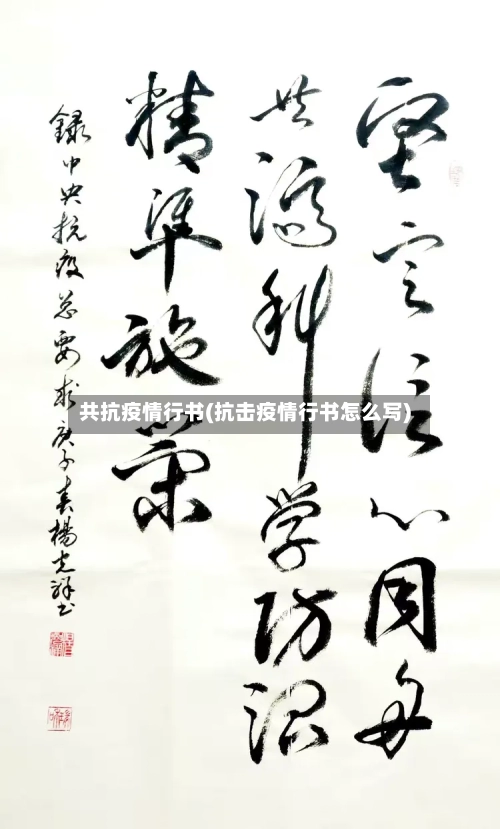 堅定信心同舟
共濟科学防控
精準施策
録中央抗疫总要求庚子春楊光祥书
共抗疫情行书(抗击疫情行书怎么写)